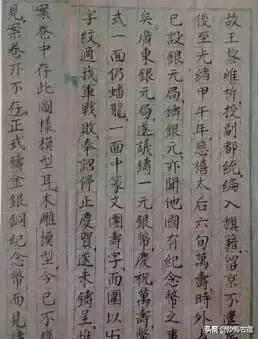 故王黎維祈授副都統編入旗籍留京不
後至光緒甲午年慈禧太后六旬萬壽時外
已設銀元局鑄銀元亦聞他國有紀念幣之事
矣廣東銀元局遂議鑄一元銀幣慶祝萬壽
式一面仍蟠龍一面中篆文團壽字而圍以卐
字紋適我軍戰敗奉詔停止慶賀遂未鑄呈
案卷中存此圖樣模型耳木雕模型今已不
見案卷亦不存正式鑄金銀銅紀念幣而見